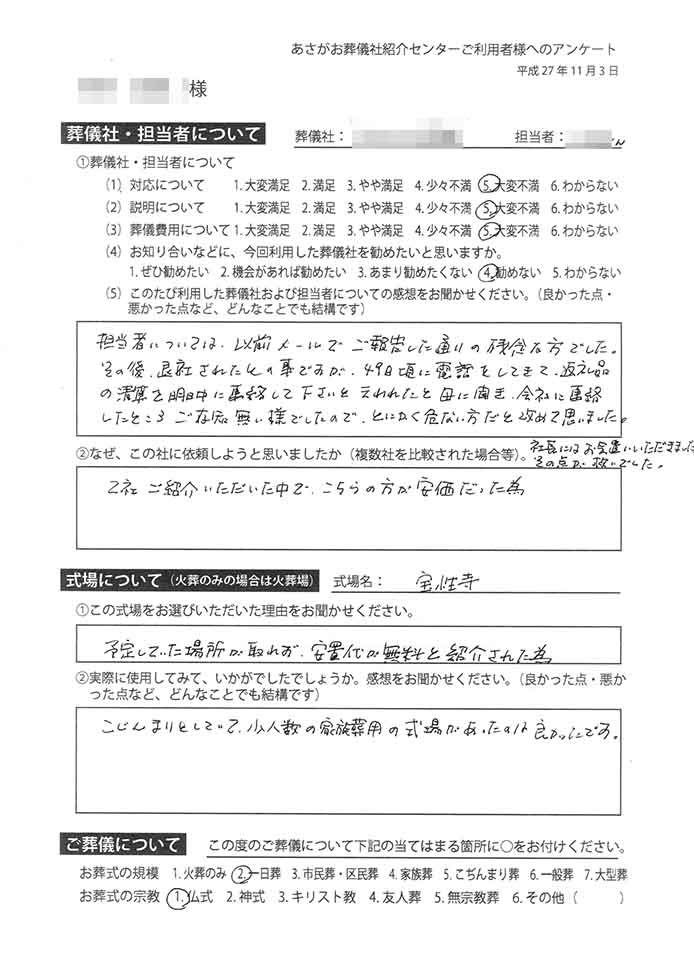 あさがお葬儀社紹介センターご利用者様へのアンケート
平成27年11月3日
様
葬儀社・担当者について 葬儀社： 担当者： さん
①葬儀社・担当者について
(1) 対応について 1.大変満足 2.満足 3.やや満足 4.少々不満 5.大変不満 6.わからない
(2) 説明について 1.大変満足 2.満足 3.やや満足 4.少々不満 5.大変不満 6.わからない
(3) 葬儀費用について 1.大変満足 2.満足 3.やや満足 4.少々不満 5.大変不満 6.わからない
(4) お知り合いなどに、今回利用した葬儀社を勧めたいと思いますか。
1.ぜひ勧めたい 2.機会があれば勧めたい 3.あまり勧めたくない 4.勧めない 5.わからない
(5) このたび利用した葬儀社および担当者についての感想をお聞かせください。（良かった点・
悪かった点など、どんなことでも結構です）
担当者については、以前メールでご報告した通りの残念な方でした。
その後、退社されたとの事ですが、49日頃に電話をしてきて、返礼品
の清算を明日中に連絡して下さいと言われたと母に聞き、会社に連絡
したところご存知無い様でしたので、とにかく危ない方だと改めて思いました。
社長にはお気遣いいただきました
その点が救いでした。
②なぜ、この社に依頼しようと思いましたか（複数社を比較された場合等）。
2社ご紹介いただいた中で、こちらの方が安価だった為
式場について（火葬のみの場合は火葬場） 式場名： 宝性寺
①この式場をお選びいただいた理由をお聞かせください。
予定していた場所が取れず、安置代が無料と紹介された為
②実際に使用してみて、いかがでしたでしょうか。感想をお聞かせください。（良かった点・悪か
った点など、どんなことでも結構です）
こじんまりとしていて、少人数の家族葬用の式場があったのは良かったです。
ご葬儀について この度のご葬儀について下記の当てはまる箇所に○をお付けください。
お葬式の規模 1.火葬のみ 2.一日葬 3.市民葬・区民葬 4.家族葬 5.こぢんまり葬 6.一般葬 7.大型葬
お葬式の宗教 1.仏式 2.神式 3.キリスト教 4.友人葬 5.無宗教葬 6.その他（ ）